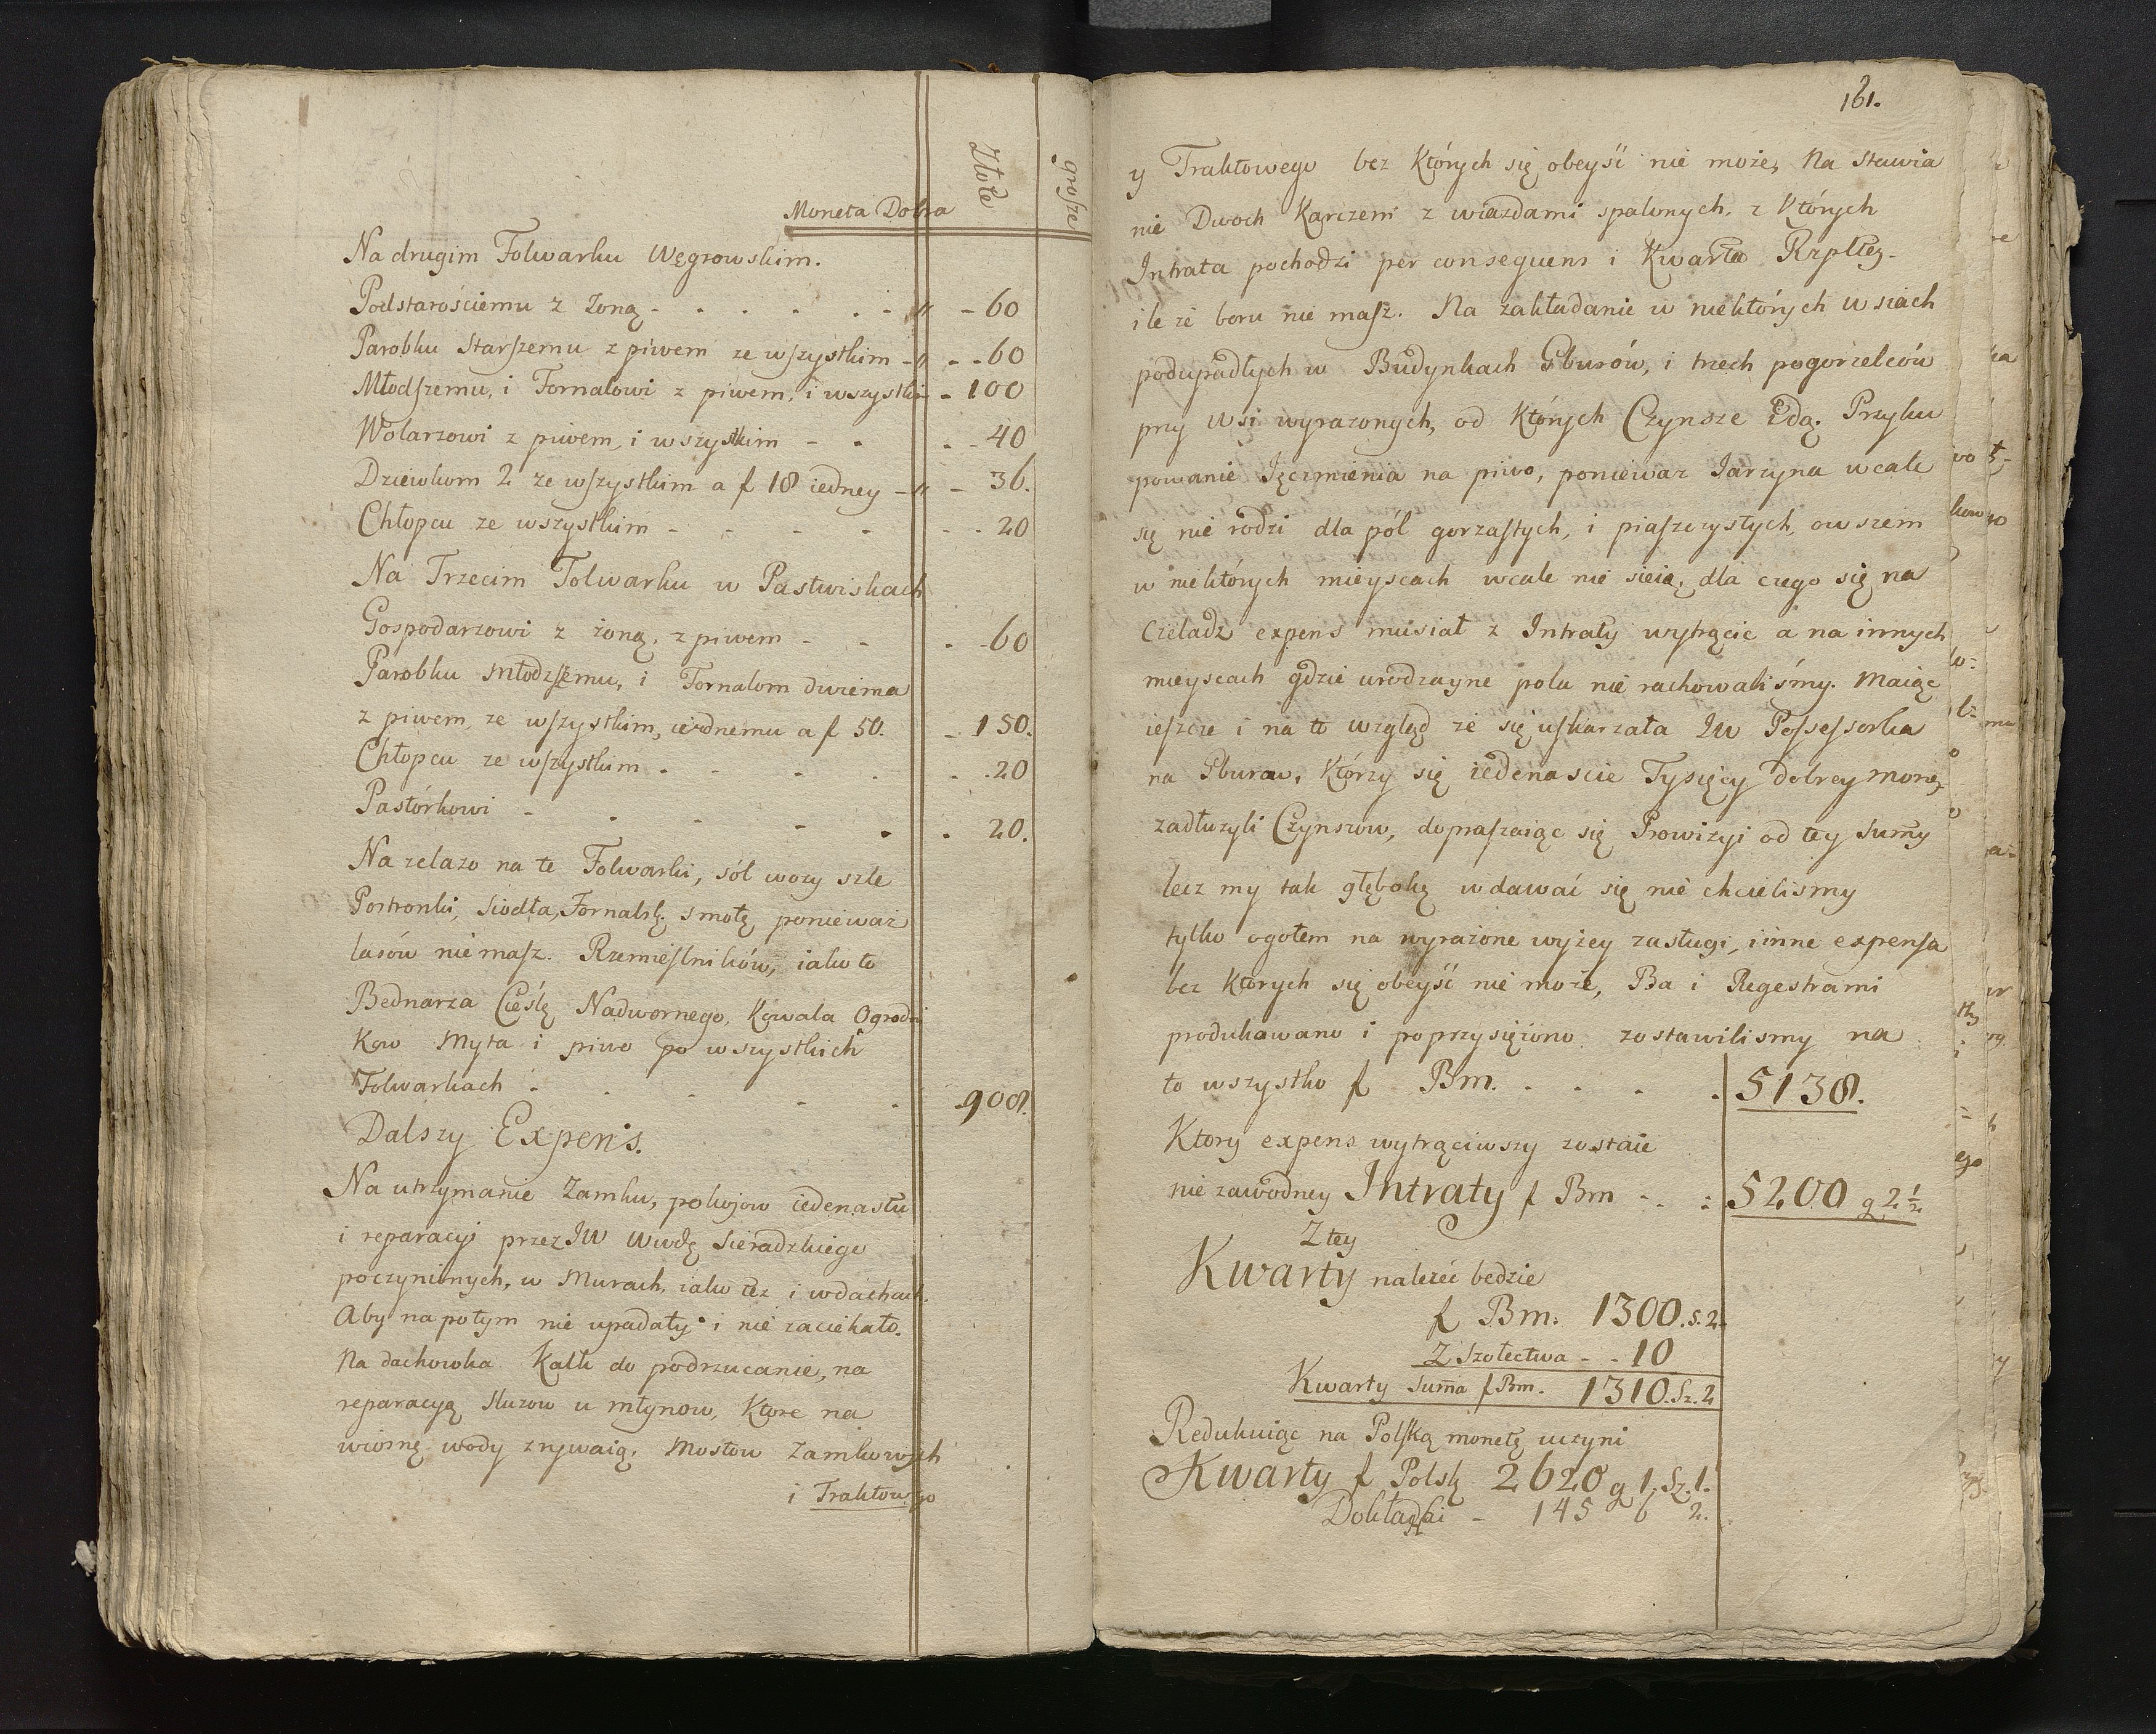 Złote
grosze
Moneta Dobra
Na drugim Folwarku Węgrowskim.
Podstarościemu z Zoną - . . . . - " - 60
Parobku Starszemu z piwem ze wszystkim - " - - 60
Młodszemu, i Fornalowi z piwem, i wszystkim - 100
Wolarzowi z piwem, i wszystkim - - . - 40
Dziewkom 2 ze wszystkim a f 18 iedney - " - 36.
Chłopcu ze wszystkim - - - - - - 20
Na Trzecim Folwarku w Pastwiskach
Gospodarzowi z żoną, z piwem - - . - 60
Parobku młodszemu, i Fornalom dwiema
z piwem, ze wszystkim, iednemu a f 50. - 150.
Chłopcu ze wszystkim . - - . - . 20
Pastórkowi - . - - . . 20.
Na zelazo na te Folwarki, sól wozy szle
Postronki, Siodła, Fornalsk: smołę ponieważ
lasów nie masz. Rzemieślników, iako to
Bednarza Cieślę Nadwornego, Kowala Ogrodni
Kow Myta i piwo po wszystkich
Folwarkach - . - - . 900.
Dalszy Expens.
Na utrzymanie Zamku, pokojow iedenastu
i reparacyi przez JW Wwdę Sieradzkiego
poczynionych, w Murach, iako też i wdachach.
Aby napotym nie upadały i nie zaciekało.
Na dachowka Kalk do podrzucanie, na
reparacyą sluzow u młynow, Ktore na
wiosnę wody zrywaią, Mostow Zamkowych
i Traktowego
161.
y Traktowego bez Których się obeyść nie może, Na stawia
nie Dwoch Karczem z wiazdami spalonych, z Których
Intrata pochodzi per consequens i Kwarta Rzpltey.
ile ze boru nie masz. Na zakładanie w niektórych wsiach
podupadłych w Budynkach Gburów, i trzech pogorzelców
przy Wsi wyrazonych, od Których Czynsze Idą. Przyku
powanie Jęczmienia na piwo, poniewaz Jarzyna wcale
się nie rodzi dla pól gorzastych, i piaszczystych, owszem
w niektórych mieyscach wcale nie sieią, dla czego się na
Czeladz expens musiał z Intraty wytrącic a na innych
mieyscach gdzie urodzayne pola nie rachowaliśmy. Maiąc
ieszcze i na to wzgląd ze się uskarzała JW Possessorka
na Gburow, Którzy się iedenascie Tysięcy dobrey mone,
zadłuzyli Czynszow, dopraszaiąc się Prowizyi od tey Summy
lecz my tak głęboką wdawać się nie chcielismy
tylko ogołem na wyrażone wyżey zasługi, i inne expensa
bez Ktorych się obeyść nie może, Ba i Regestrami
produkowano i poprzysięziono zostawilismy na
to wszystko f Bm. . . . . 5138.
Ktory expens wytrąciwszy zostaie
nie zawodney Intraty f Bm - - : 5200 g 2 1/2
Z tey
Kwarty nalezeć bedzie
f Bm: 1300. s. 2.
Z Szołectwa - - 10
Kwarty Summa f Bm. 1310. Sz. 2
Redukuiąc na Polską monetę uczyni
Kwarty f Polsk 2620 g 1. Sz. 1.
Dokładki - 145 6 2.